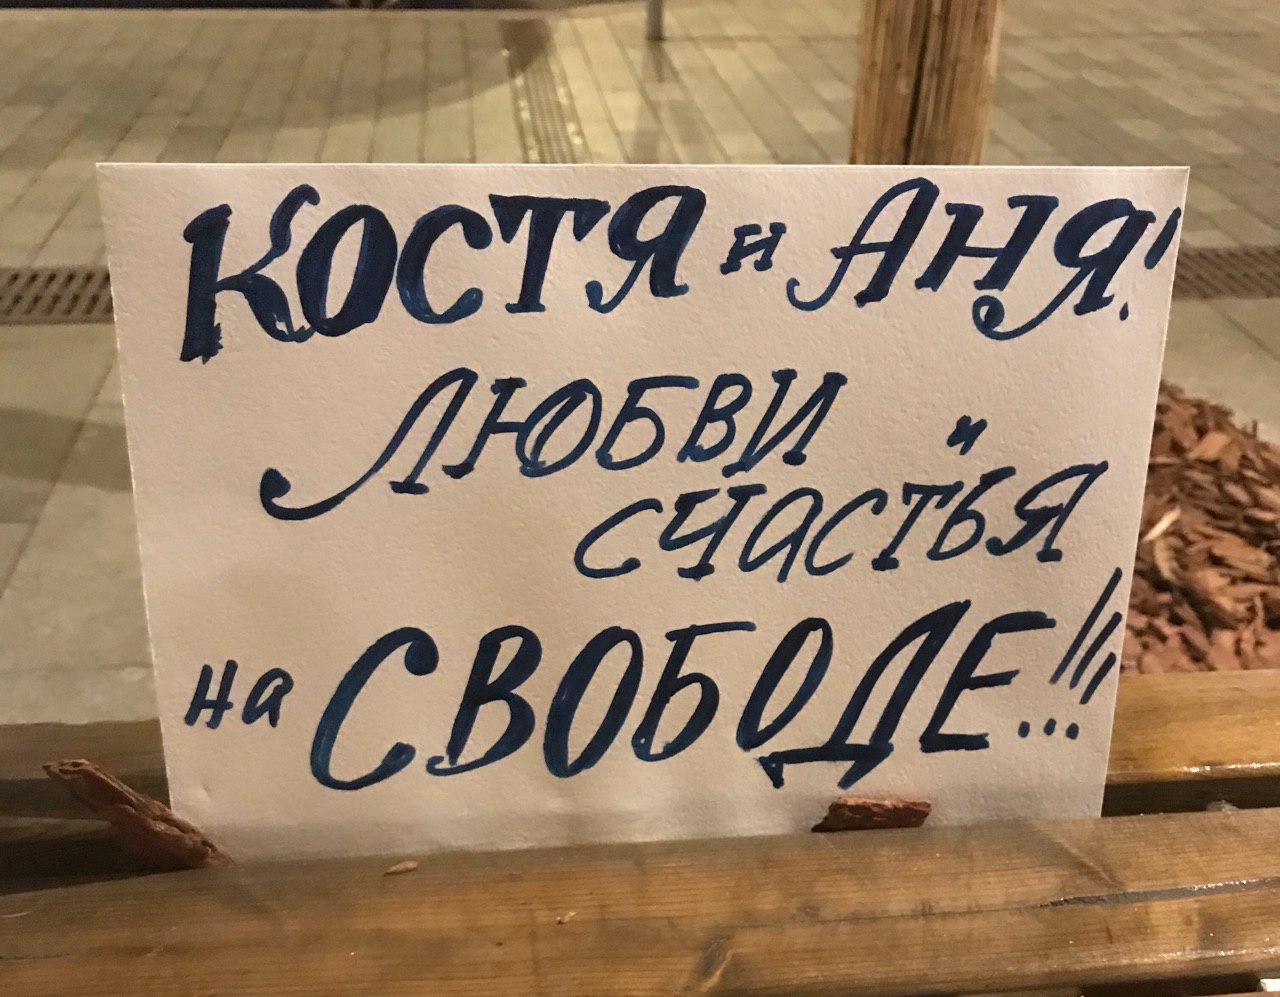 КОСТЯ и АНЯ!
ЛЮБВИ и
СЧАСТЬЯ
на СВОБОДЕ...!!!